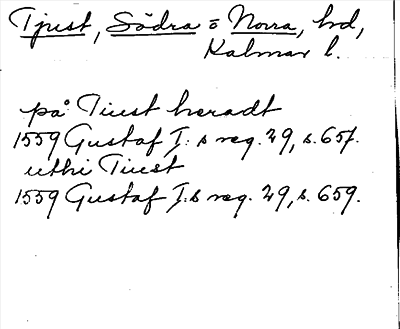 Tjust, Södra o Norra, hd,
Kalmar l.
på Tiust heradt
1559 Gustaf I:s reg. 29, s. 657.
uthi Tiust
1559 Gustaf I:s reg. 29, s. 659.